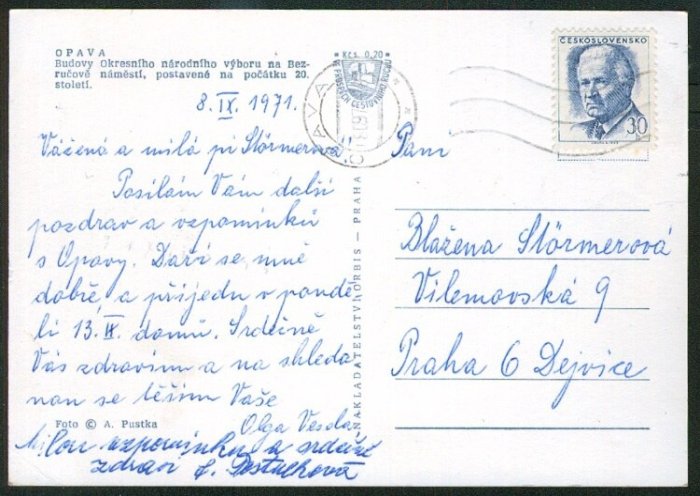 OPAVA
Budovy Okresního národního výboru na Bez-
ručově náměstí, postavené na počátku 20.
století.
8. IX. 1971.
Vážená a milá pí Störmerová
Posílám Vám další
pozdrav a vzpomínku
s Opavy. Daří se mně
dobře, a přijedu v pondě
li 13. IX. domů. Srdečně
Vás zdravím a na shleda
nou se těším Vaše
Olga
Foto © A. Pustka
Milou vzpomínku a srdečné
zdraví
NAKLADATELSTVÍ ORBIS — PRAHA
* Kčs. 0,20 *
OPAVA
ČESKOSLOVENSKO
30
Paní
Blažena Störmerová
Vilemovská 9
Praha 6 Dejvice